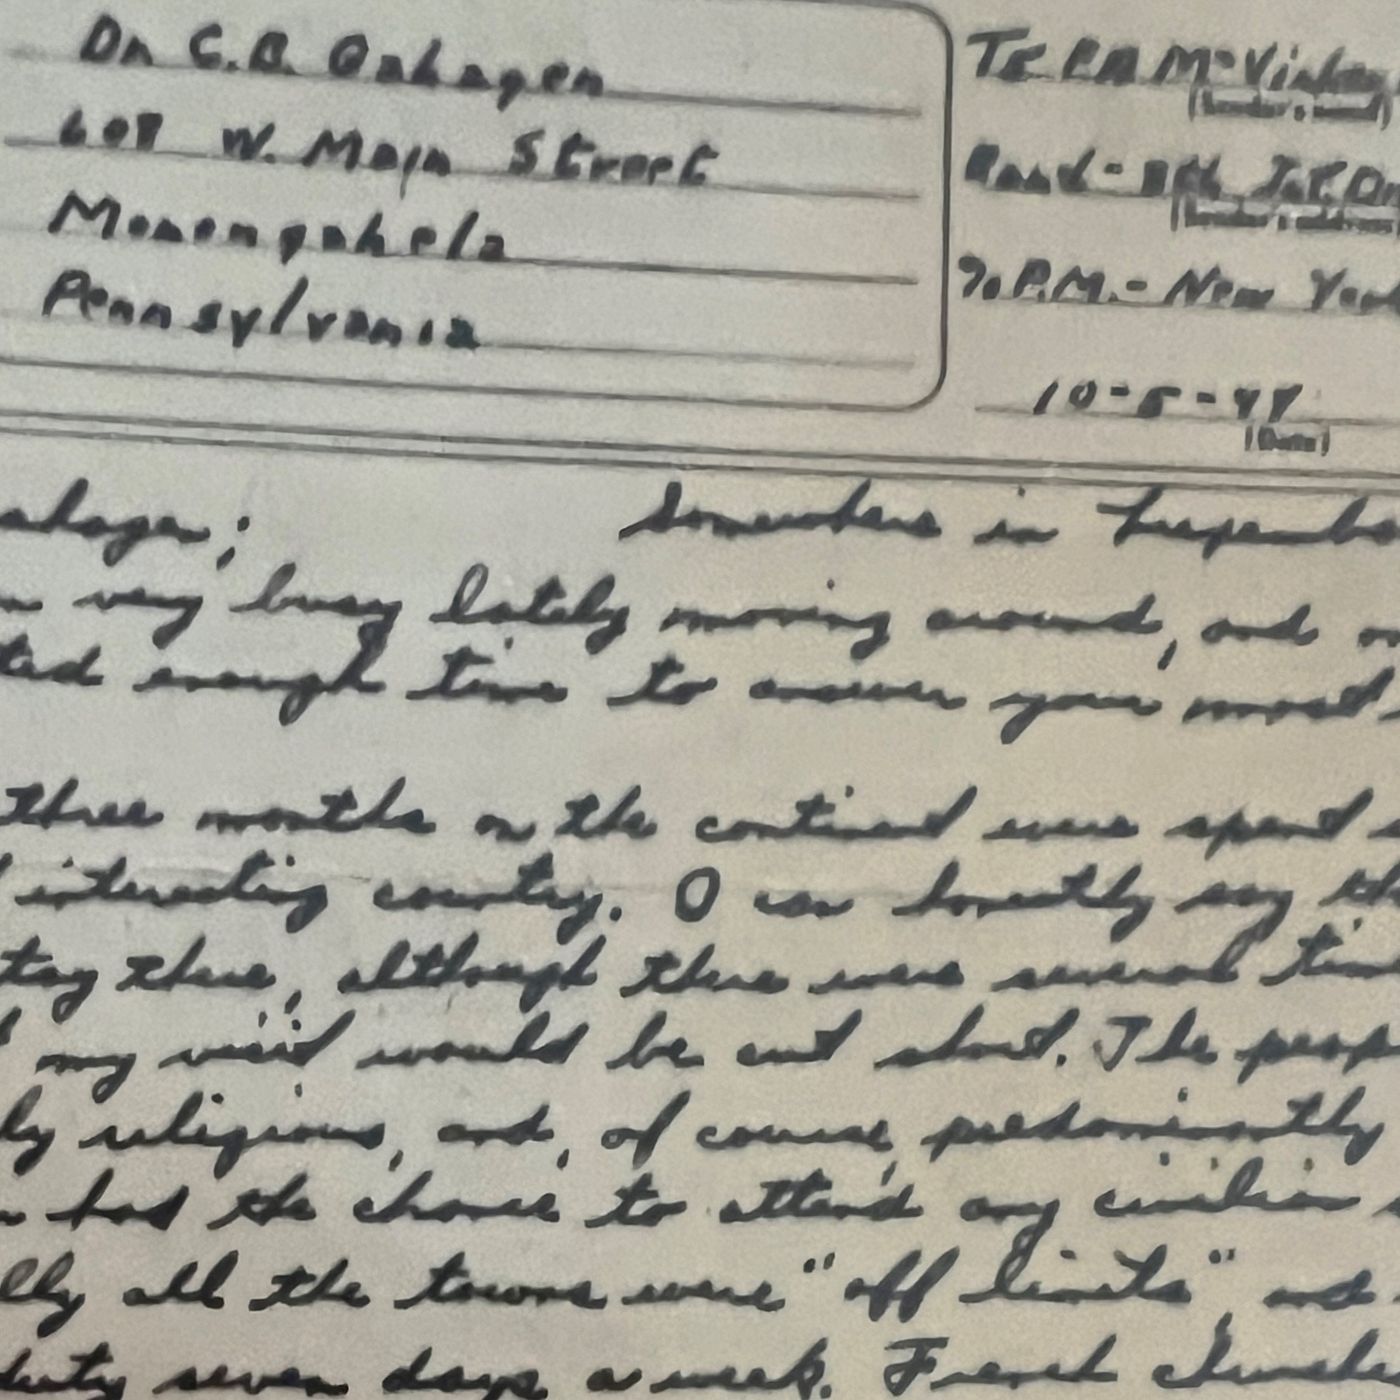 Dr. C.B. Gahagen
608 W. Main Street
Monongahela
Pennsylvania
(Sender's name)
Band - 8th
(Sender's address)
% P.M. - New York
10-5-44
(Date)
Somewhere in
very busy lately moving around, and
enough time to answer your most
three months on the continent were spent
interesting country. I can honestly say
there, although there were several
my visit would be cut short. The
religious, and, of course, predominantly
had the chance to attend any civilian
all the towns were "off limits", and
duty seven days a week. French